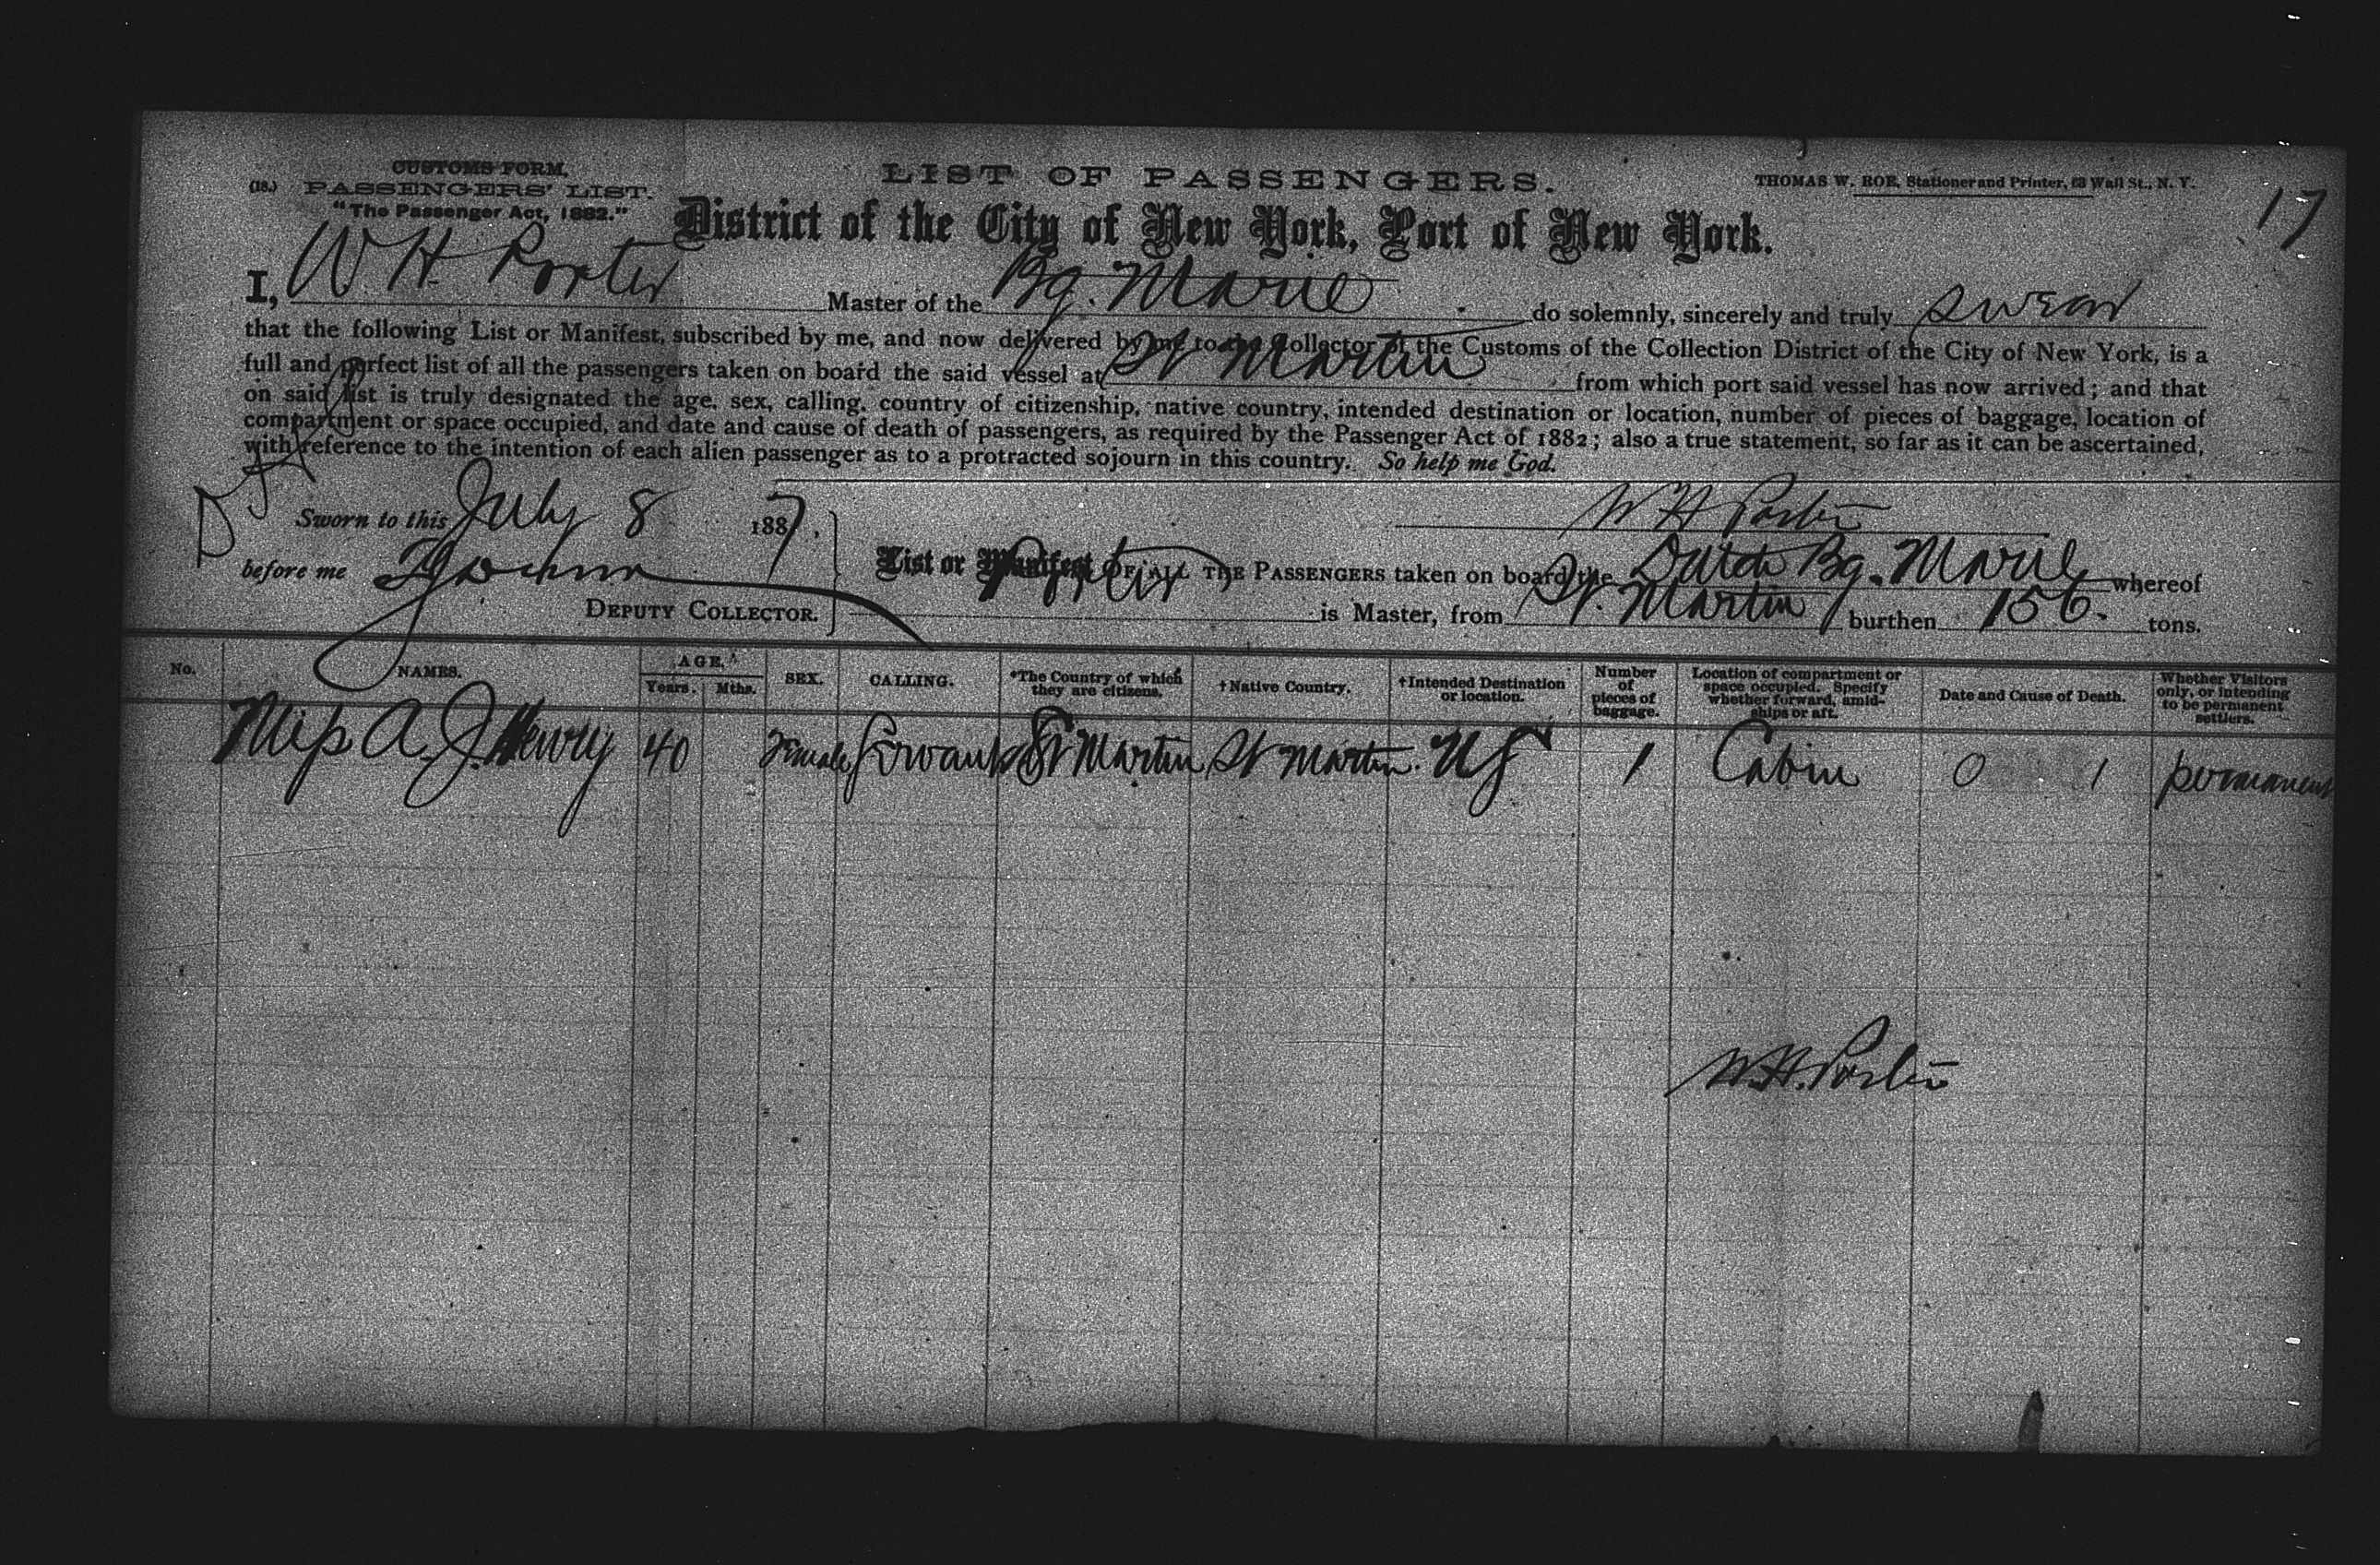 CUSTOMS FORM.
(18.) PASSENGERS' LIST.
"The Passenger Act, 1882."
LIST OF PASSENGERS.
THOMAS W. ROE, Stationer and Printer, 63 Wall St., N. Y.
17
District of the City of New York, Port of New York.
I, W. H. Porter Master of the Bg. Marie do solemnly, sincerely and truly swear
that the following List or Manifest, subscribed by me, and now delivered by me to the Collector of the Customs of the Collection District of the City of New York, is a
full and perfect list of all the passengers taken on board the said vessel at St Martin from which port said vessel has now arrived; and that
on said list is truly designated the age, sex, calling, country of citizenship, native country, intended destination or location, number of pieces of baggage, location of
compartment or space occupied, and date and cause of death of passengers, as required by the Passenger Act of 1882; also a true statement, so far as it can be ascertained,
with reference to the intention of each alien passenger as to a protracted sojourn in this country. So help me God.
Sworn to this July 8 1887,
W H Porter
before me
List or Manifest OF ALL THE PASSENGERS taken on board the Dutch Bg. Marie whereof
DEPUTY COLLECTOR.
Porter is Master, from St. Martin burthen 156. tons.
No. NAMES. AGE. Years. Mths. SEX. CALLING. *The Country of which they are citizens. †Native Country. †Intended Destination or location. Number of pieces of baggage. Location of compartment or space occupied. Specify whether forward, amidships or aft. Date and Cause of Death. Whether Visitors only, or intending to be permanent settlers.
Miss A. J. Henry 40 Female Servant St Martin St Martin. US 1 Cabin 0 1 permanent
W. H. Porter